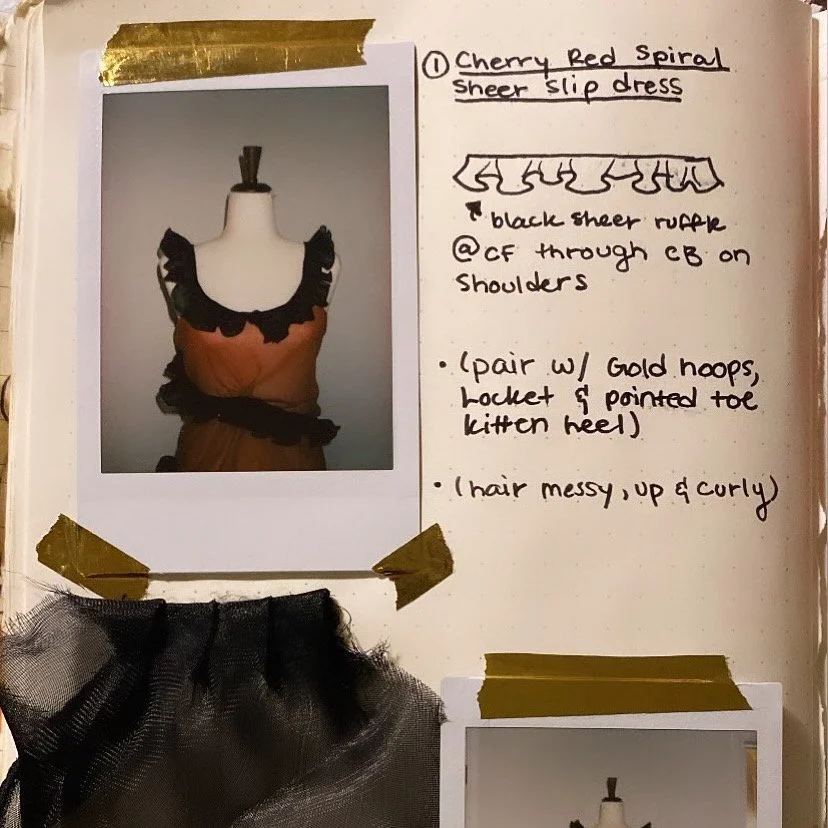 ① Cherry Red Spiral
Sheer slip dress
black sheer ruffle
@ CF through CB on
Shoulders
• (pair w/ Gold hoops,
Locket & pointed toe
kitten heel)
• (hair messy, up & curly)